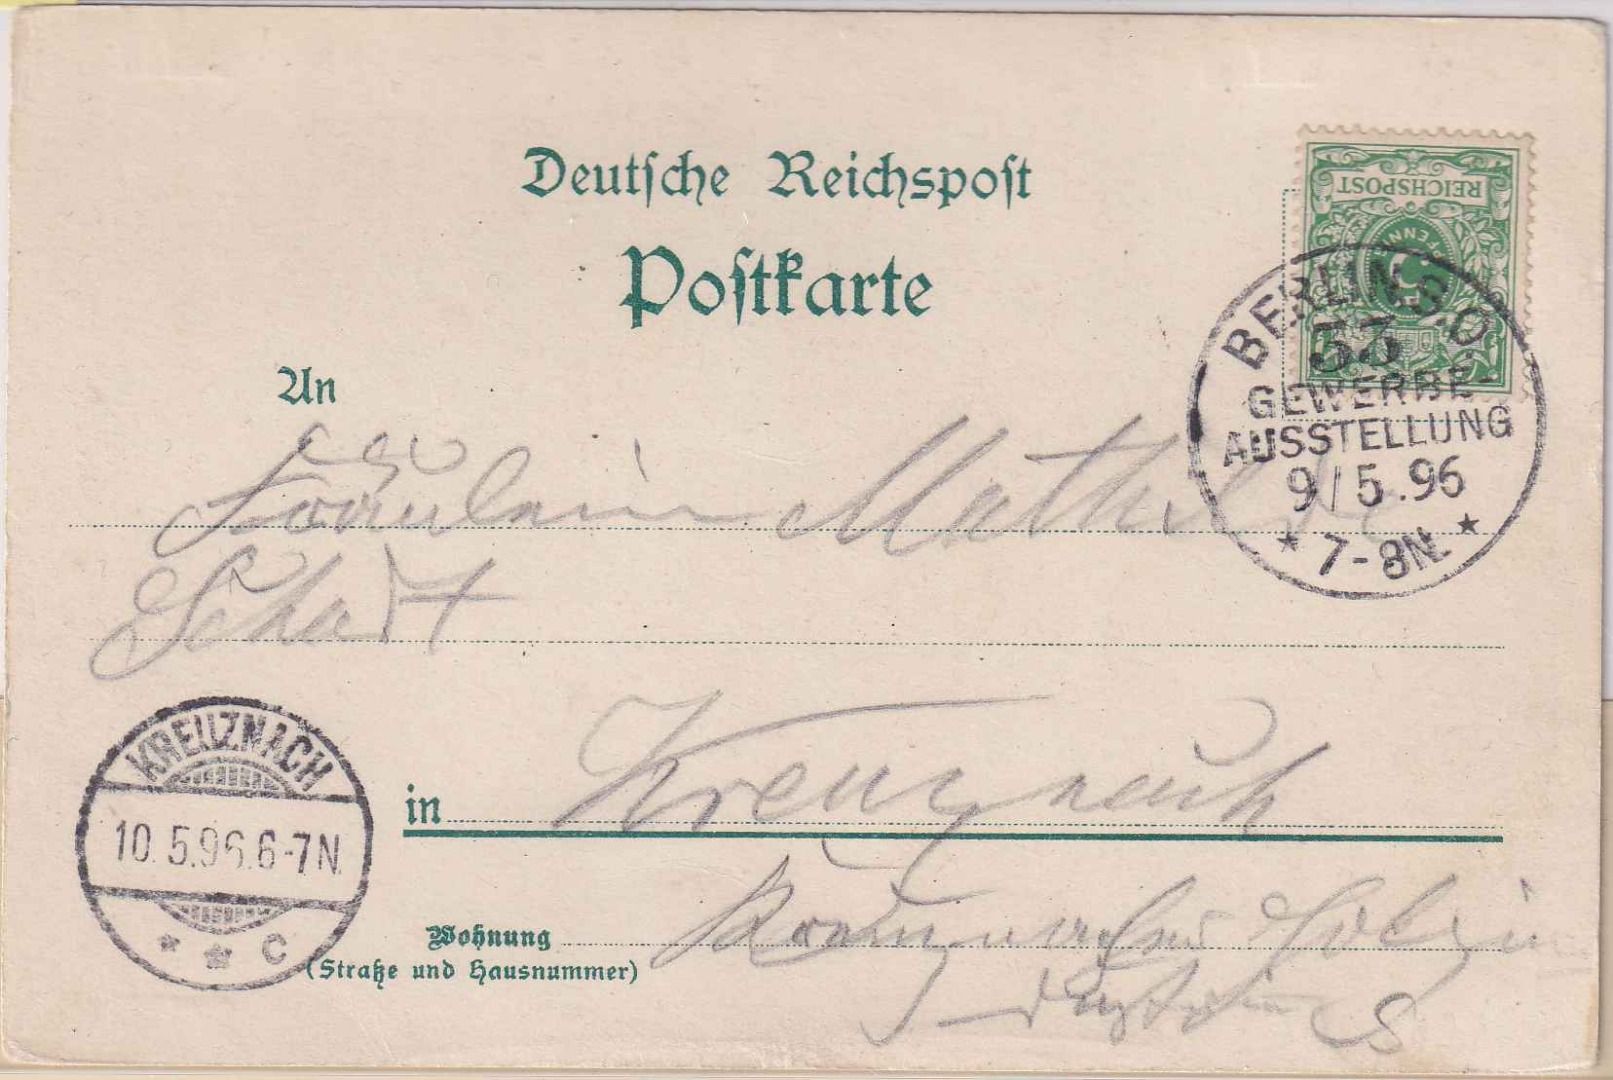 Deutsche Reichspost
Postkarte
REICHSPOST
PFENNIG
BERLIN S.O.
33
GEWERBE-
AUSSTELLUNG
9/5.96
7-8N.
An
Fräulein Mathilde
Schart
KREUZNACH
10.5.96.6-7N.
* * C
in Kreuznach
Wohnung Kreuznacher
(Straße und Hausnummer)